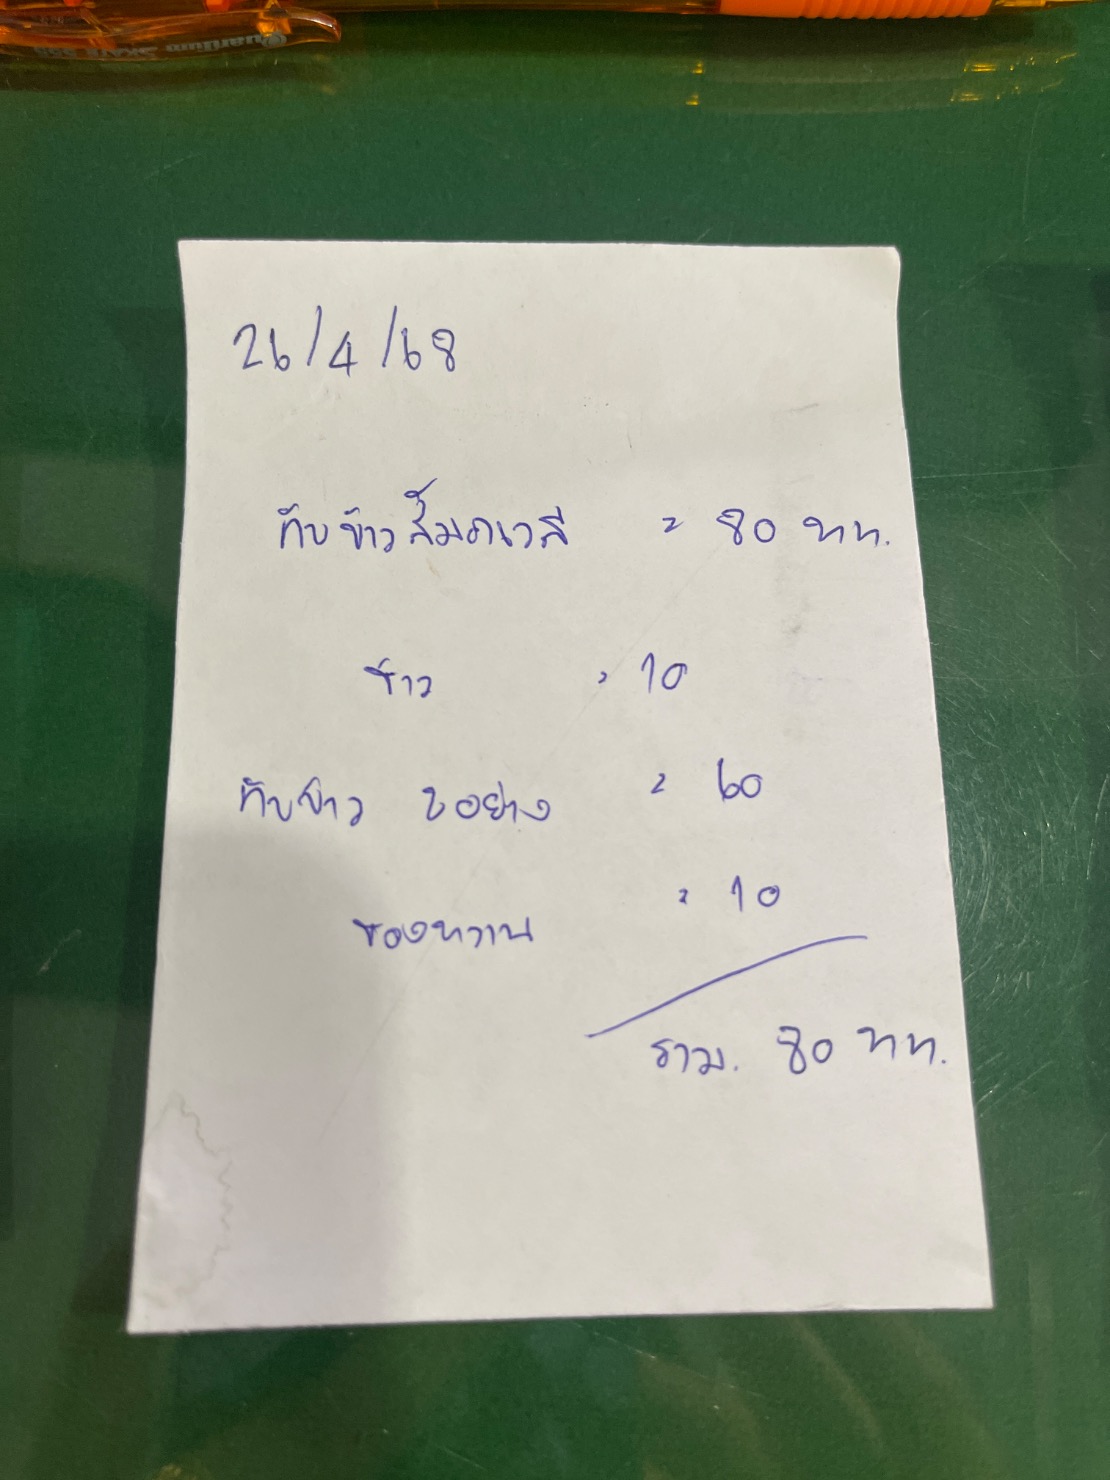 26/4/68
กับข้าวสัมภเวสี = 80 บาท.
ข้าว = 10
กับข้าว 2 อย่าง = 60
ของหวาน = 10
รวม. 80 บาท.